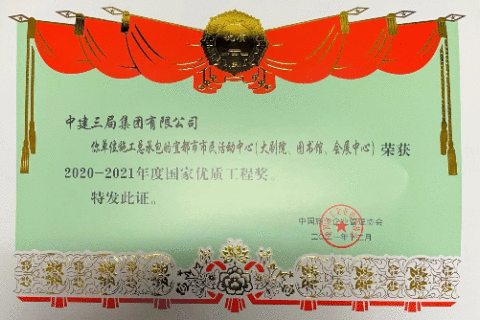 中建三局集团有限公司
你单位施工总承包的宜都市市民活动中心(大剧院、图书馆、会展中心)荣获
2020-2021年度国家优质工程奖。
特发此证。
中国施工企业管理协会
二〇二一年十二月